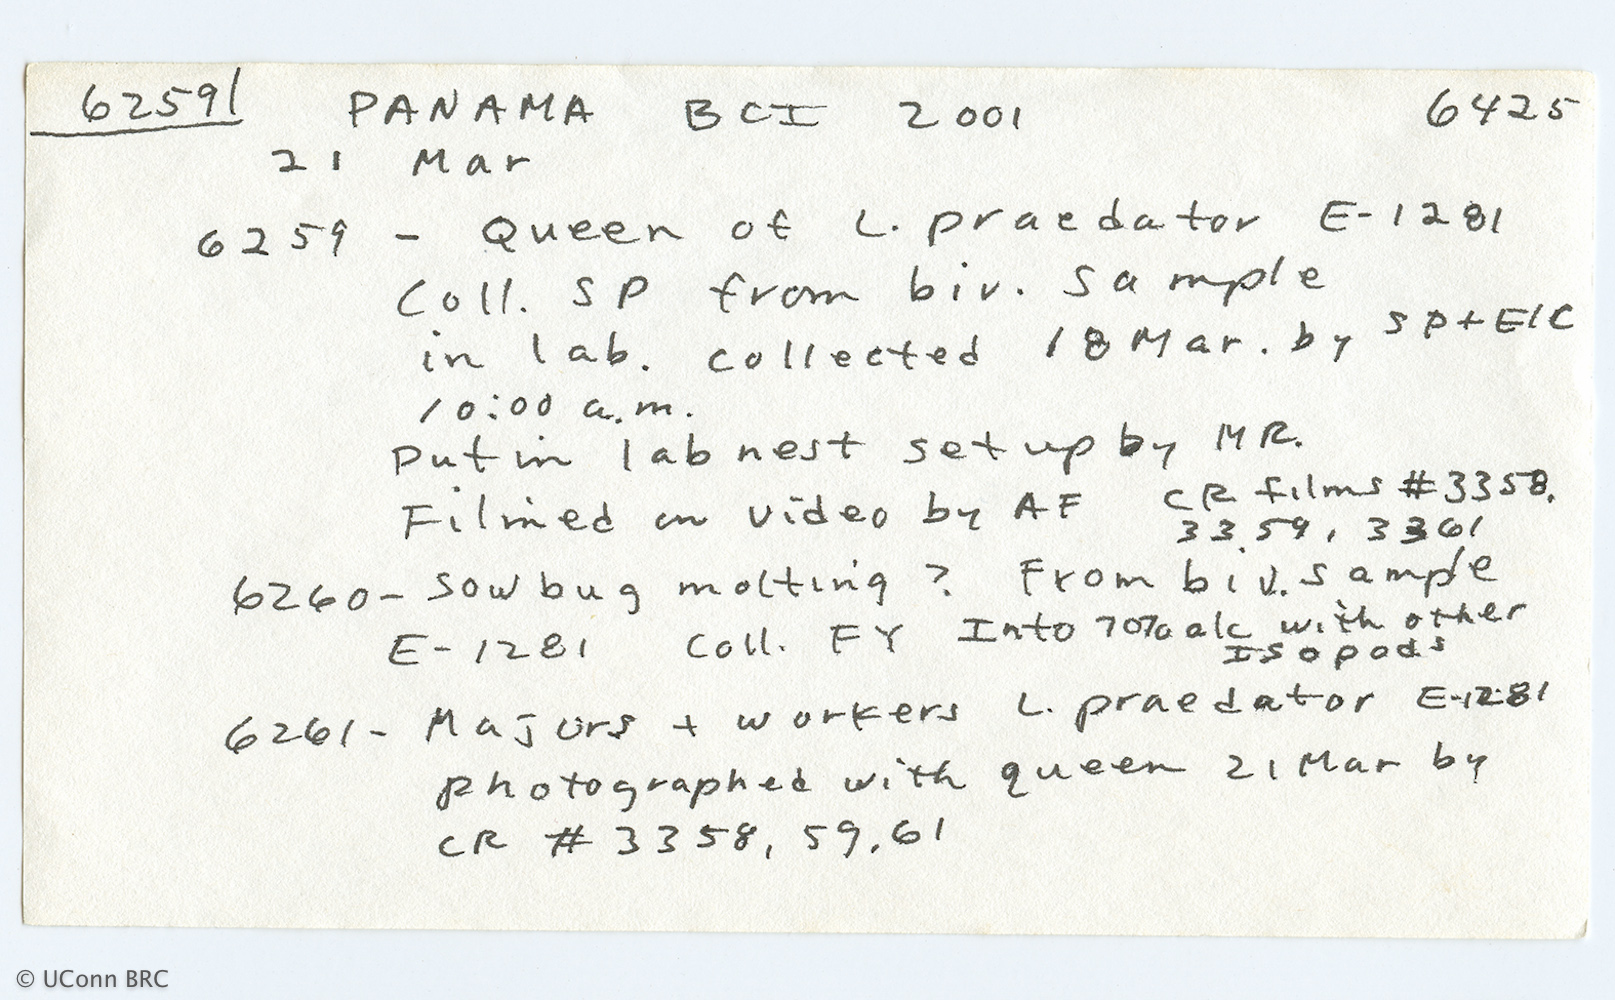 6259 PANAMA BCI 2001 6425
21 Mar
6259 - Queen of L. praedator E-1281
Coll. SP from biv. sample
in lab. collected 18 Mar. by SP+EIC
10:00 a.m.
Put in lab nest set up by MR.
Filmed on video by AF CR films #3358,
3359, 3361
6260- Sowbug molting? From biv. sample
E-1281 Coll. FY Into 70% alc with other
Isopods
6261- Majors + workers L. praedator E-1281
photographed with queen 21 Mar by
CR #3358, 59, 61
© UConn BRC